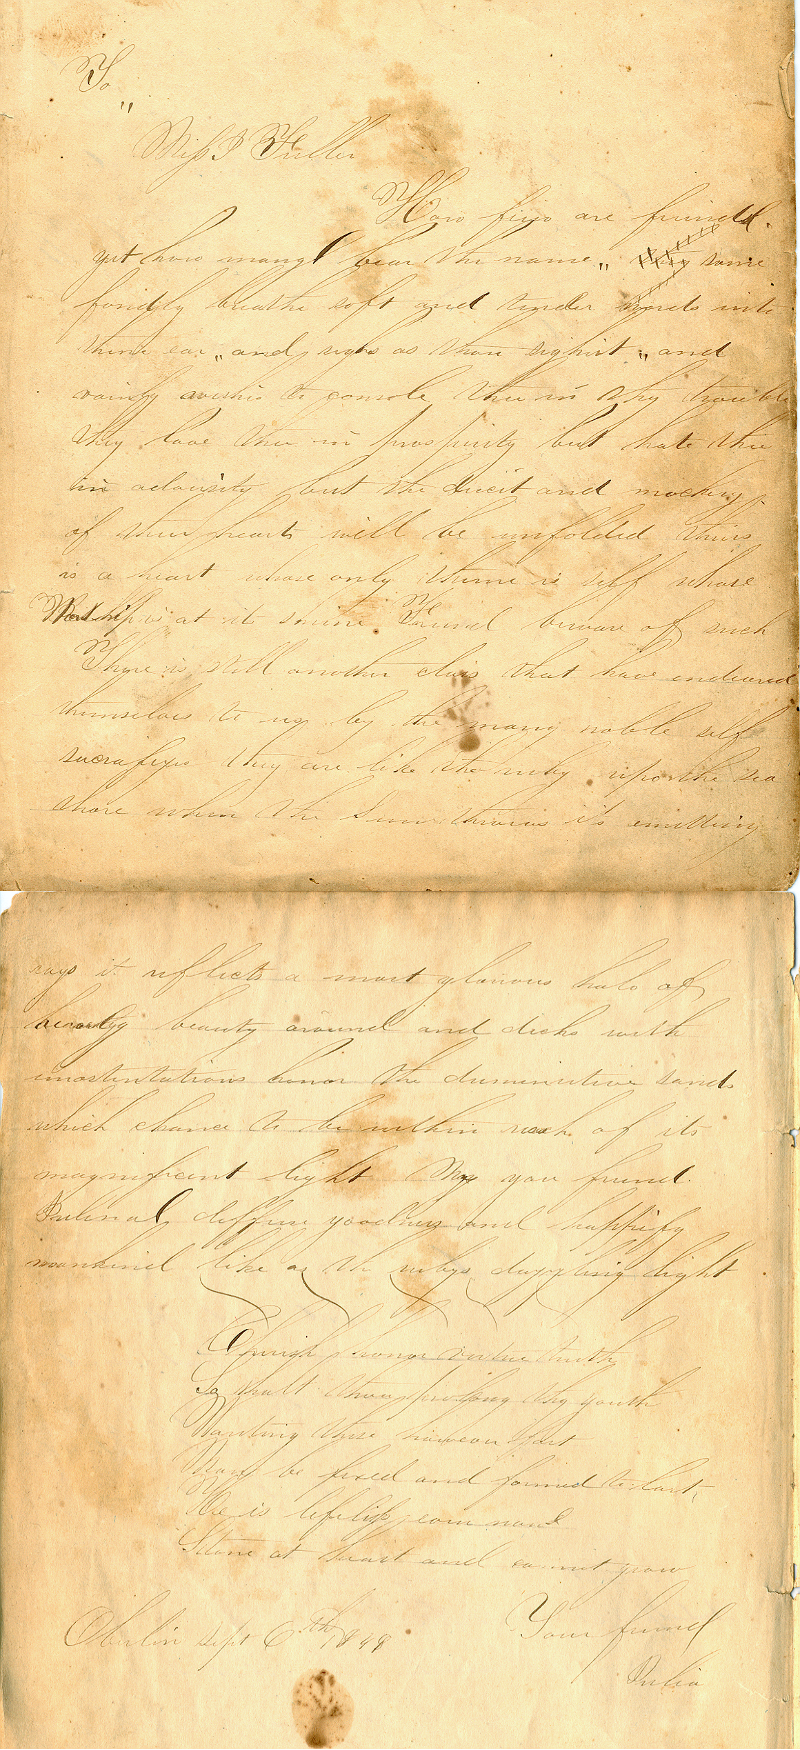 To
"
Miss J Fuller
How few are friends.
yet how many bear the name „ some
fondly breathe soft and tender words into
thine ear „ and sighs as thou sighist „ and
vainly wishes to console thee in thy trouble
they love thee in prosperity but hate thee
in adversity but the deceit and mockery
of their hearts will be unfolded theirs
is a heart whose only theme is self whose
Worship is at its shrine Friend beware of such
There is still another class that have endeared
themselves to us by the many noble self
sacrafises they are like the ruby upon the sea
shore when the Sun throws its emitting
rays it reflects a most glorious halo of
beauty around and decks with
unostentatious honor the diminutive sands
which chance to be within reach of its
magnificent light May you friend
Julina diffuse goodness and happify
mankind like as the rubys dazzling light
Cherish honor virtue truth
So shalt thou prolong thy youth
Wanting these however fast
Man be fixed and formed to last
He is lifeliss even now
Stone at heart and cannot grow
Oberlin sept 6th 1848
Your friend
Julia